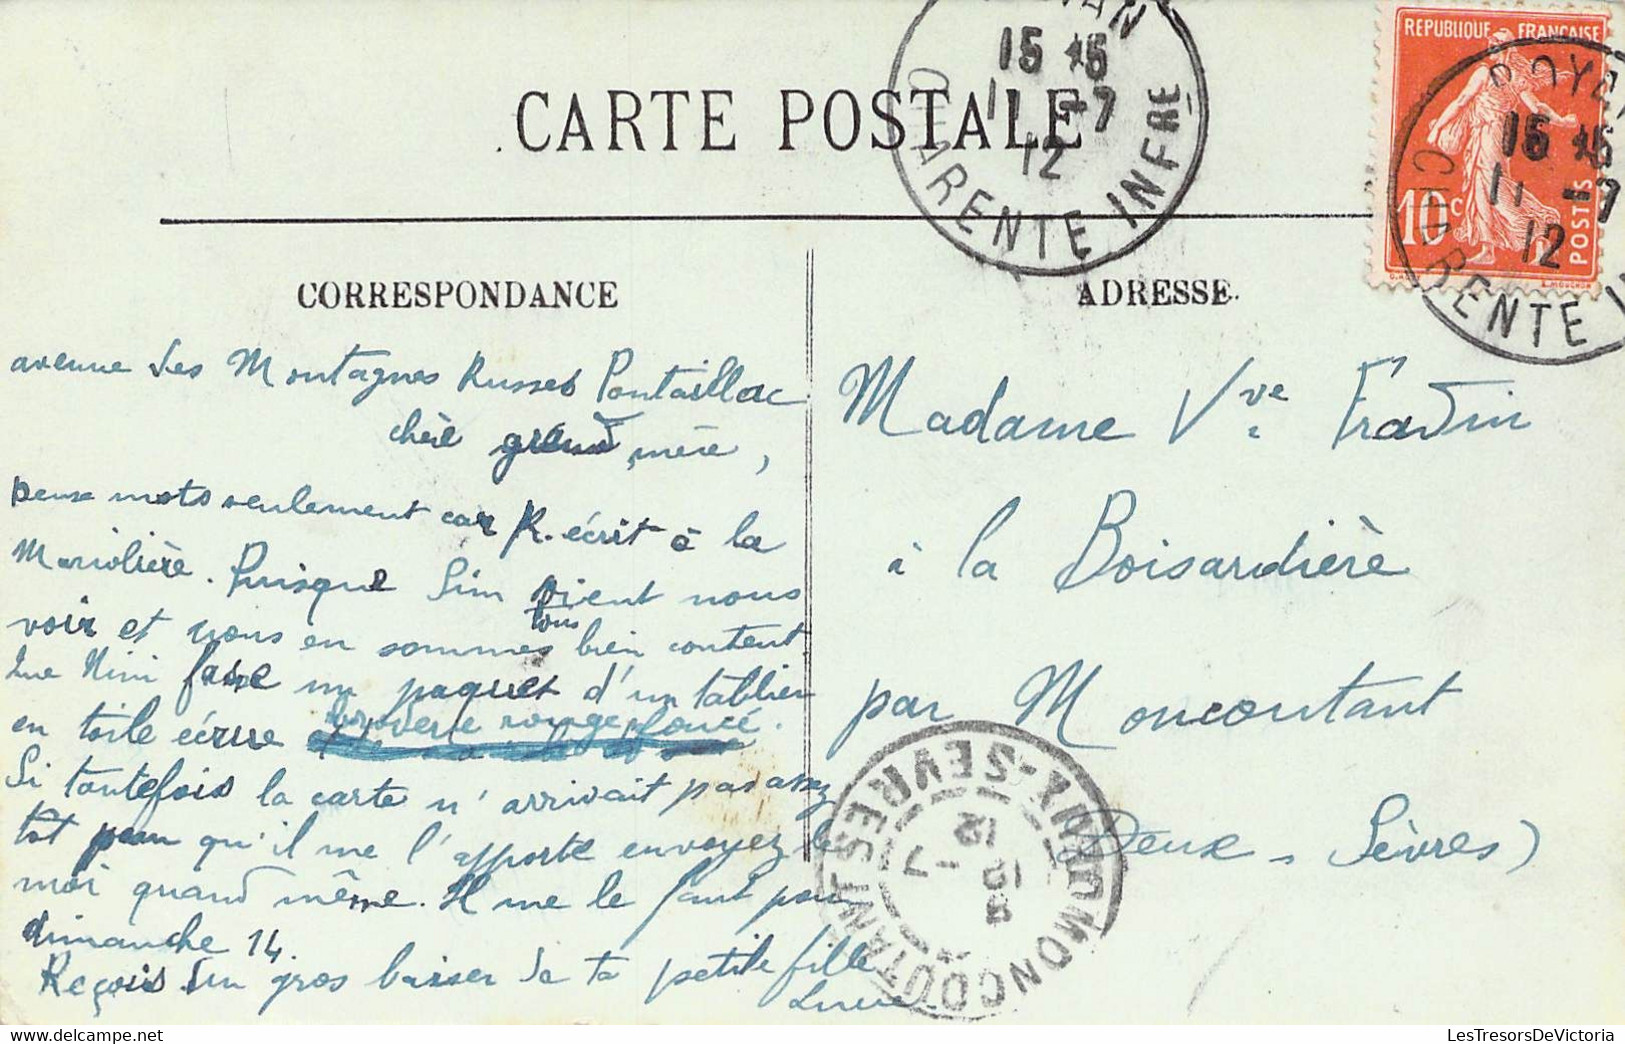 CARTE POSTALE
15 *15
11 -7
12
CHARENTE INFRE
REPUBLIQUE FRANÇAISE
10c
POSTES
ROYAN
15 *15
11 -7
12
CHARENTE
CORRESPONDANCE
ADRESSE.
avenue des Montagnes Russes Pontaillac
chère grand mère,
Deux mots seulement car R. écrit à la
Mariolière. Puisque Sim vient nous
voir et nous en sommes tous bien content.
Que Nini fasse un paquet d'un tablier
en toile écrue broderie rouge foncé.
Si toutefois la carte n'arrivait pas assez
tôt pour qu'il me l'apporte envoyez le
moi quand même. Il me le faut pour
dimanche 14.
Reçois d'un gros baiser de ta petite fille
Madame Vve Fradin
à la Boisardière
par Moncoutant
Deux-Sèvres)
MONCOUTANT DEUX-SEVRES
8
12 -7
12
LesTresorsDeVictoria